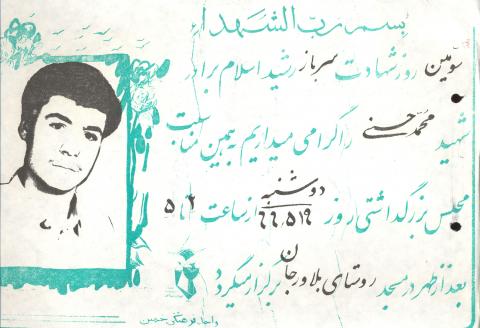 بسم رب الشهداء
سومین روز شهادت سرباز رشید اسلام برادر
شهید محمد حسنی را گرامی میداریم بهمین مناسبت
مجلس بزرگداشتی روز دوشنبه ۶۶،۵،۱۹ از ساعت ۲ تا ۵
بعد از ظهر در مسجد روستای بلاورجان برگزار میگردد
واحد فرهنگی خمین